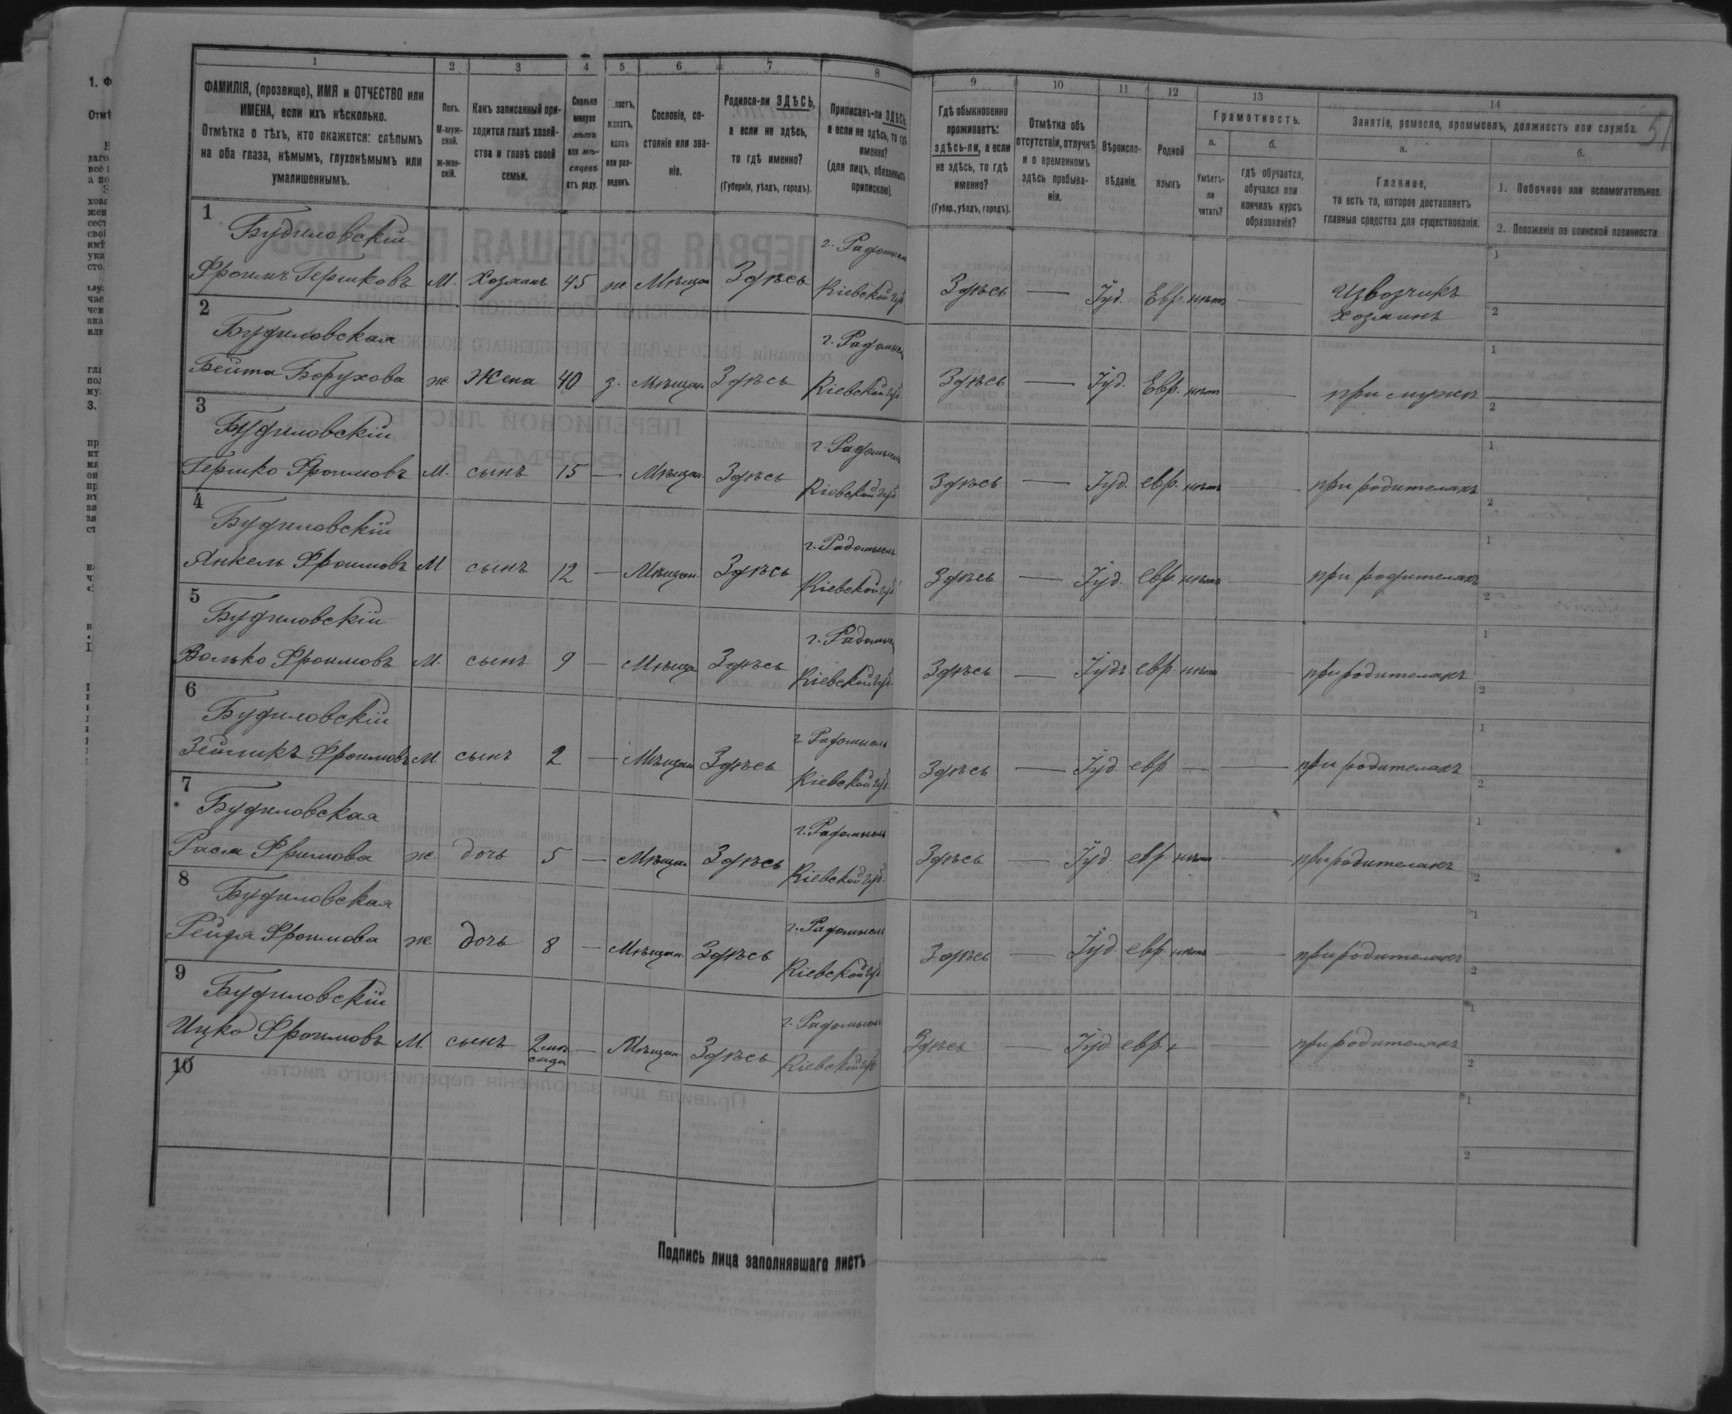 1 2 3 4 5 6 7 8 9 10 11 12 13 14
51
ФАМИЛІЯ, (прозвище), ИМЯ и ОТЧЕСТВО или
ИМЕНА, если ихъ нѣсколько.
Отмѣтка о тѣхъ, кто окажется: слѣпымъ
на оба глаза, нѣмымъ, глухонѣмымъ или
умалишеннымъ.
Полъ.
М-муж-
ской.
ж-жен-
скій.
Какъ записанный при-
ходится главѣ хозяй-
ства и главѣ своей
семьи.
Сколько
минуло
лѣтъ
или мѣ-
сяцевъ
отъ роду.
Сословіе, со-
стояніе или зва-
ніе.
Родился-ли ЗДѢСЬ,
а если не здѣсь,
то гдѣ именно?
(Губернія, уѣздъ, городъ).
Приписанъ-ли ЗДѢСЬ,
а если не здѣсь, то гдѣ
именно?
(для лицъ, обязанныхъ
припиской).
Гдѣ обыкновенно
проживаетъ:
здѣсь-ли, а если
не здѣсь, то гдѣ
именно?
(Губер., уѣздъ, городъ).
Отмѣтка объ
отсутствіи, отлучкѣ
и о временномъ
здѣсь пребыва-
ніи.
Вѣроиспо-
вѣданіе.
Родной
языкъ
Грамотность.
а.
Умѣетъ-
ли
читать?
б.
гдѣ обучается,
обучался или
кончилъ курсъ
образованія?
Занятія, ремесло, промыселъ, должность или служба.
а.
Главное,
то есть то, которое доставляетъ
главныя средства для существованія.
б.
1. Побочное или вспомогательное.
2. Положеніе по воинской повинности.
1
Будиловскій г. Радомысль
Фроимъ Гершковъ М. Хозяинъ 45 ж Мѣщан Здѣсь Кіевской губ Здѣсь — Іуд. Евр. нѣт — Извозчикъ
хозяинъ
2
Будиловская г. Радомысль
Бейта Борухова ж Жена 40 з. Мѣщан Здѣсь Кіевской губ Здѣсь — Іуд. Евр. нѣт — при мужѣ
3
Будиловскій г. Радомысль
Гершко Фроимовъ М. сынъ 15 — Мѣщан. Здѣсь Кіевской губ Здѣсь — Іуд. евр. нѣт — при родителяхъ
4
Будиловскій г. Радомысль
Янкель Фроимовъ М сынъ 12 — Мѣщан. Здѣсь Кіевской губ Здѣсь — Іуд. евр. нѣт — при родителяхъ
5
Будиловскій г. Радомысль
Волько Фроимовъ М. сынъ 9 — Мѣщан Здѣсь Кіевской губ. Здѣсь — Іудъ евр. нѣт — при родителяхъ
6
Будиловскій г. Радомысль
Зейликъ Фроимовъ М сынъ 2 — Мѣщан Здѣсь Кіевской губ. Здѣсь — Іуд евр — — при родителяхъ
7
Будиловская г. Радомысль
Фримова ж. дочь 5 — Мѣщан Здѣсь Кіевской губ. Здѣсь — Іуд евр нѣт — при родителяхъ
8
Будиловская г. Радомысль
Рейдя Фроимова ж дочь 8 — Мѣщан Здѣсь Кіевской губ Здѣсь — Іуд евр. нѣт — при родителяхъ
9
Будиловскій г. Радомысль
Ицко Фроимовъ М. сынъ 2 мѣ-
сяца — Мѣщан Здѣсь Кіевской губ Здѣсь — Іуд евр. — — при родителяхъ
10
Подпись лица заполнявшаго листъ